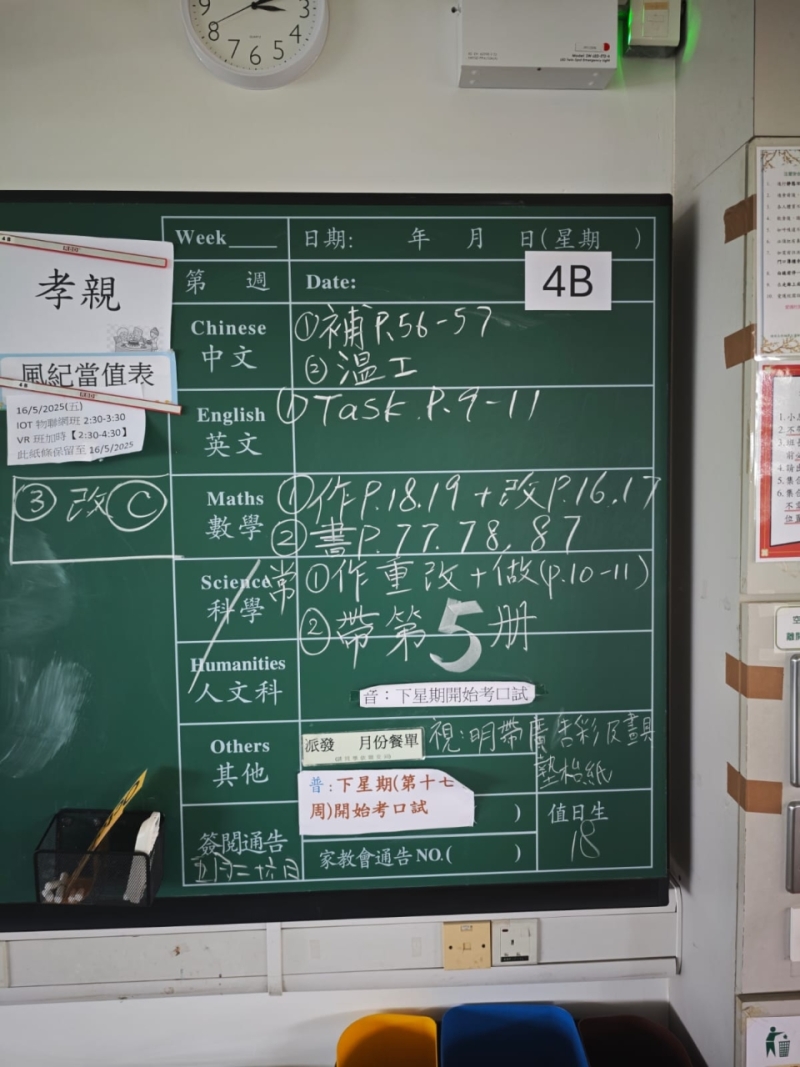 9
3
8
4
7
6
5
4B
孝親
風紀當值表
16/5/2025(五)
IOT 物聯網班 2:30-3:30
VR 班加時【2:30-4:30】
此紙條保留至 16/5/2025
③ 改Ⓒ
Week____ 日期: 年 月 日(星期 )
第 週 Date:
4B
Chinese 中文
①補P.56-57
②溫工
English 英文
①Task P.9-11
Maths 數學
①作P.18.19+改P.16.17
②書P.77.78,87
Science 科學
常
①作重改+做(p.10-11)
②帶第5册
Humanities 人文科
音：下星期開始考口試
Others 其他
派發 月份餐單
視：明帶廣告彩及畫具
墊枱紙
普：下星期(第十七
周)開始考口試
)
值日生
18
簽閱通告
家教會通告 NO.( )